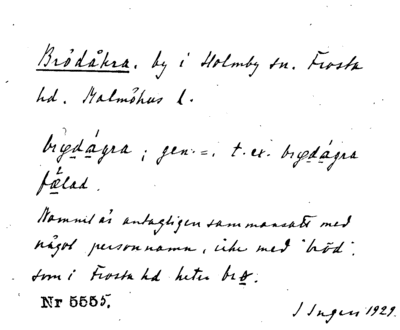 Brödåkra. by i Holmby sn. Frosta
hd. Malmöhus l.
gen. =. t. ex.
fǽlad.
Namnet är antagligen sammansatt med
något personnamn, icke med "bröd".
som i Frosta hd heter brø.
Nr 5555.
J Ingers 1929.